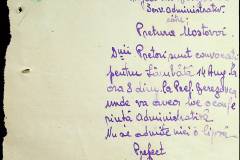 Serv. Administrativ
către
Pretura Mostovoi
D-nii Pretori sunt convocați
pentru Sâmbătă 14 Aug. la
ora 8 dim. la Pref. Berezovca
unde va avea loc o confe
rință Administrativă
Nu se admite nici o lipsă
Prefect